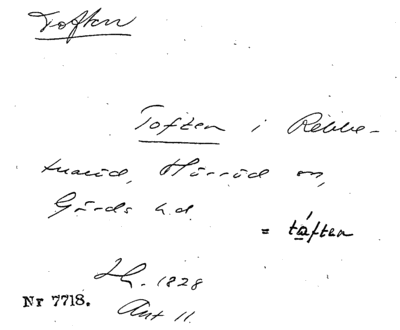 Toften
Toften i Rebbe-
tuaröd, Hörröd sn,
Gärds hd.
= tåften
Lh. 1828
Nr 7718. Akt 11.